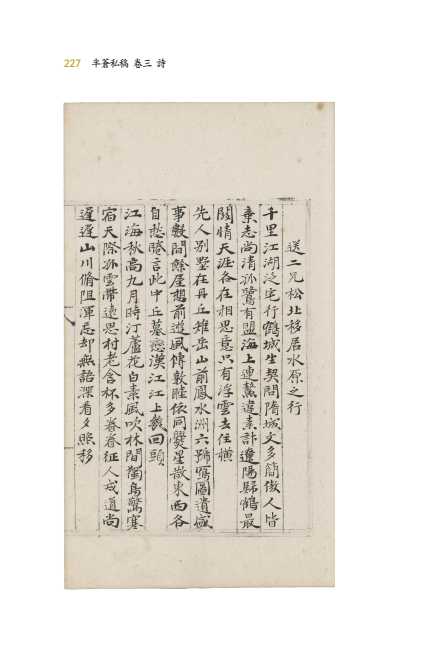 227 半蒼私稿 卷三 詩
送二兄松北移居水原之行
千里江湖泛宅行鶴城生契問隋城文多簡傲人皆
棄志尚清孤鷺有盟海上連鰲違素計遼陽歸鶴最
關情天涯各在相思意只有浮雲去住橫
先人別墅在丹丘雉岳山前鳳水洲六
事數間餘屋想前遊風傳敦睦依同爨星散東西各
自愁睠言此中丘墓戀漢江江上幾回頭
江海秋高九月時汀蘆花白素風吹林間獨鳥驚寒
宿天際孤雲帶遠思村老含杯多眷眷征人戒道尚
遲遲山川脩阻渾忘却無語深看夕照移